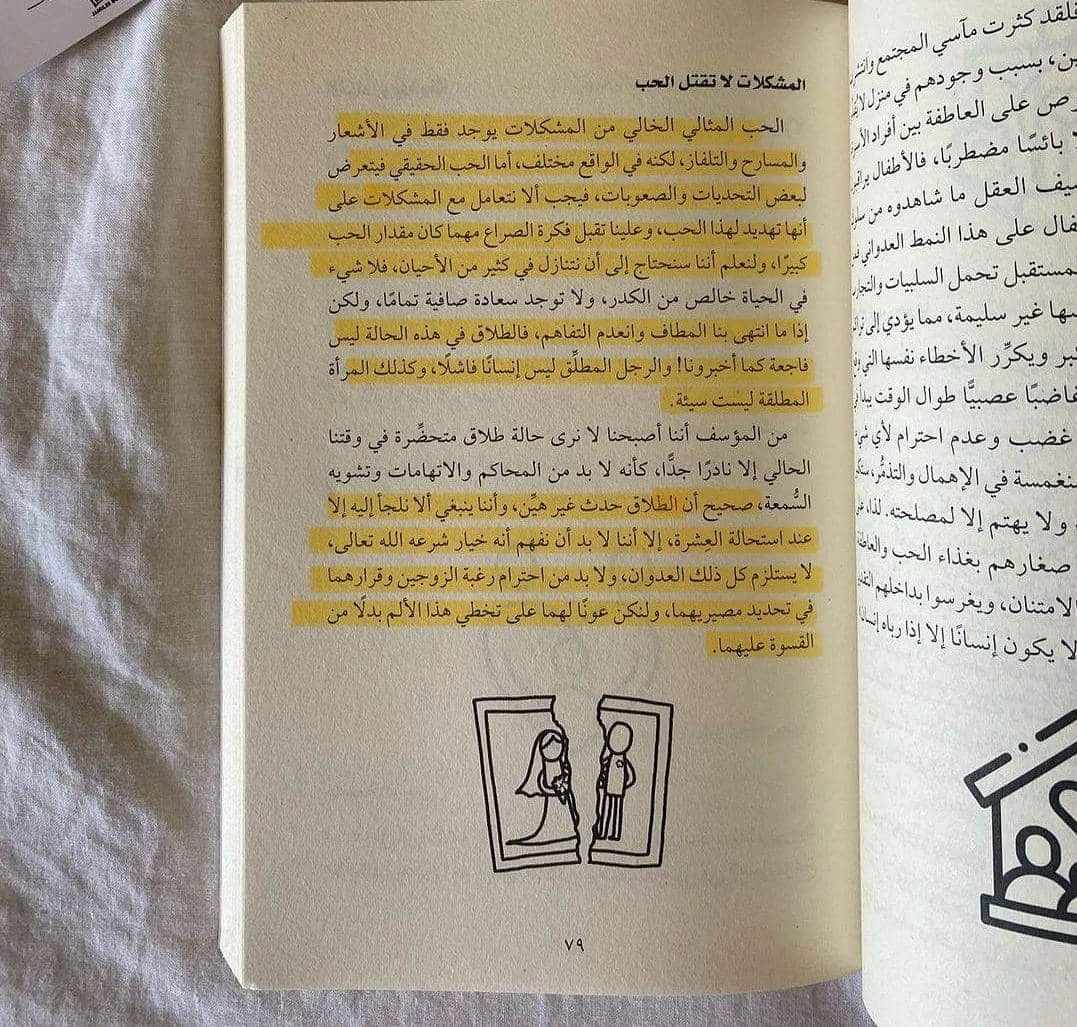 المشكلات لا تقتل الحب
الحب المثالي الخالي من المشكلات يوجد فقط في الأشعار
والمسارح والتلفاز، لكنه في الواقع مختلف، أما الحب الحقيقي فيتعرض
لبعض التحديات والصعوبات، فيجب ألا نتعامل مع المشكلات على
أنها تهديد لهذا الحب، وعلينا تقبل فكرة الصراع مهما كان مقدار الحب
كبيرًا، ولنعلم أننا سنحتاج إلى أن نتنازل في كثير من الأحيان، فلا شيء
في الحياة خالص من الكدر، ولا توجد سعادة صافية تمامًا، ولكن
إذا ما انتهى بنا المطاف وانعدم التفاهم، فالطلاق في هذه الحالة ليس
فاجعة كما أخبرونا! والرجل المطلِّق ليس إنسانًا فاشلًا، وكذلك المرأة
المطلقة ليست سيئة.
من المؤسف أننا أصبحنا لا نرى حالة طلاق متحضِّرة في وقتنا
الحالي إلا نادرًا جدًّا، كأنه لا بد من المحاكم والاتهامات وتشويه
السُّمعة، صحيح أن الطلاق حدث غير هيِّن، وأننا ينبغي ألا نلجأ إليه إلا
عند استحالة العِشرة، إلا أننا لا بد أن نفهم أنه خيار شرعه الله تعالى،
لا يستلزم كل ذلك العدوان، ولا بد من احترام رغبة الزوجين وقرارهما
في تحديد مصيريهما، ولنكن عونًا لهما على تخطي هذا الألم بدلًا من
القسوة عليهما.
٧٩
فلقد كثرت مآسي المجتمع
بسبب وجودهم في منزل
على العاطفة بين أفراد
بائسًا مضطربًا، فالأطفال
العقل ما شاهدوه من
على هذا النمط العدواني
تحمل السلبيات
غير سليمة، مما يؤدي إلى
ويكرِّر الأخطاء نفسها
عصبيًّا طوال الوقت
غضب وعدم احترام لأي
في الإهمال والتذمُّر،
ولا يهتم إلا لمصلحته. لذا،
صغارهم بغذاء الحب
الامتنان، ويغرسوا بداخلهم
لا يكون إنسانًا إلا إذا رباه